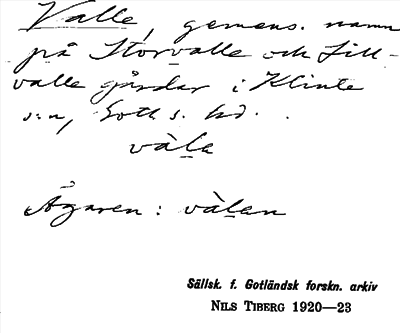 Valle, gemens. namn
på Storvalle och Lill-
valle gårdar i Klinte
s:n, Gotl s. hd.
vàl̲a
Ägaren : vàl̲an
Sällsk. f. Gotländsk forskn. arkiv
NILS TIBERG 1920—23